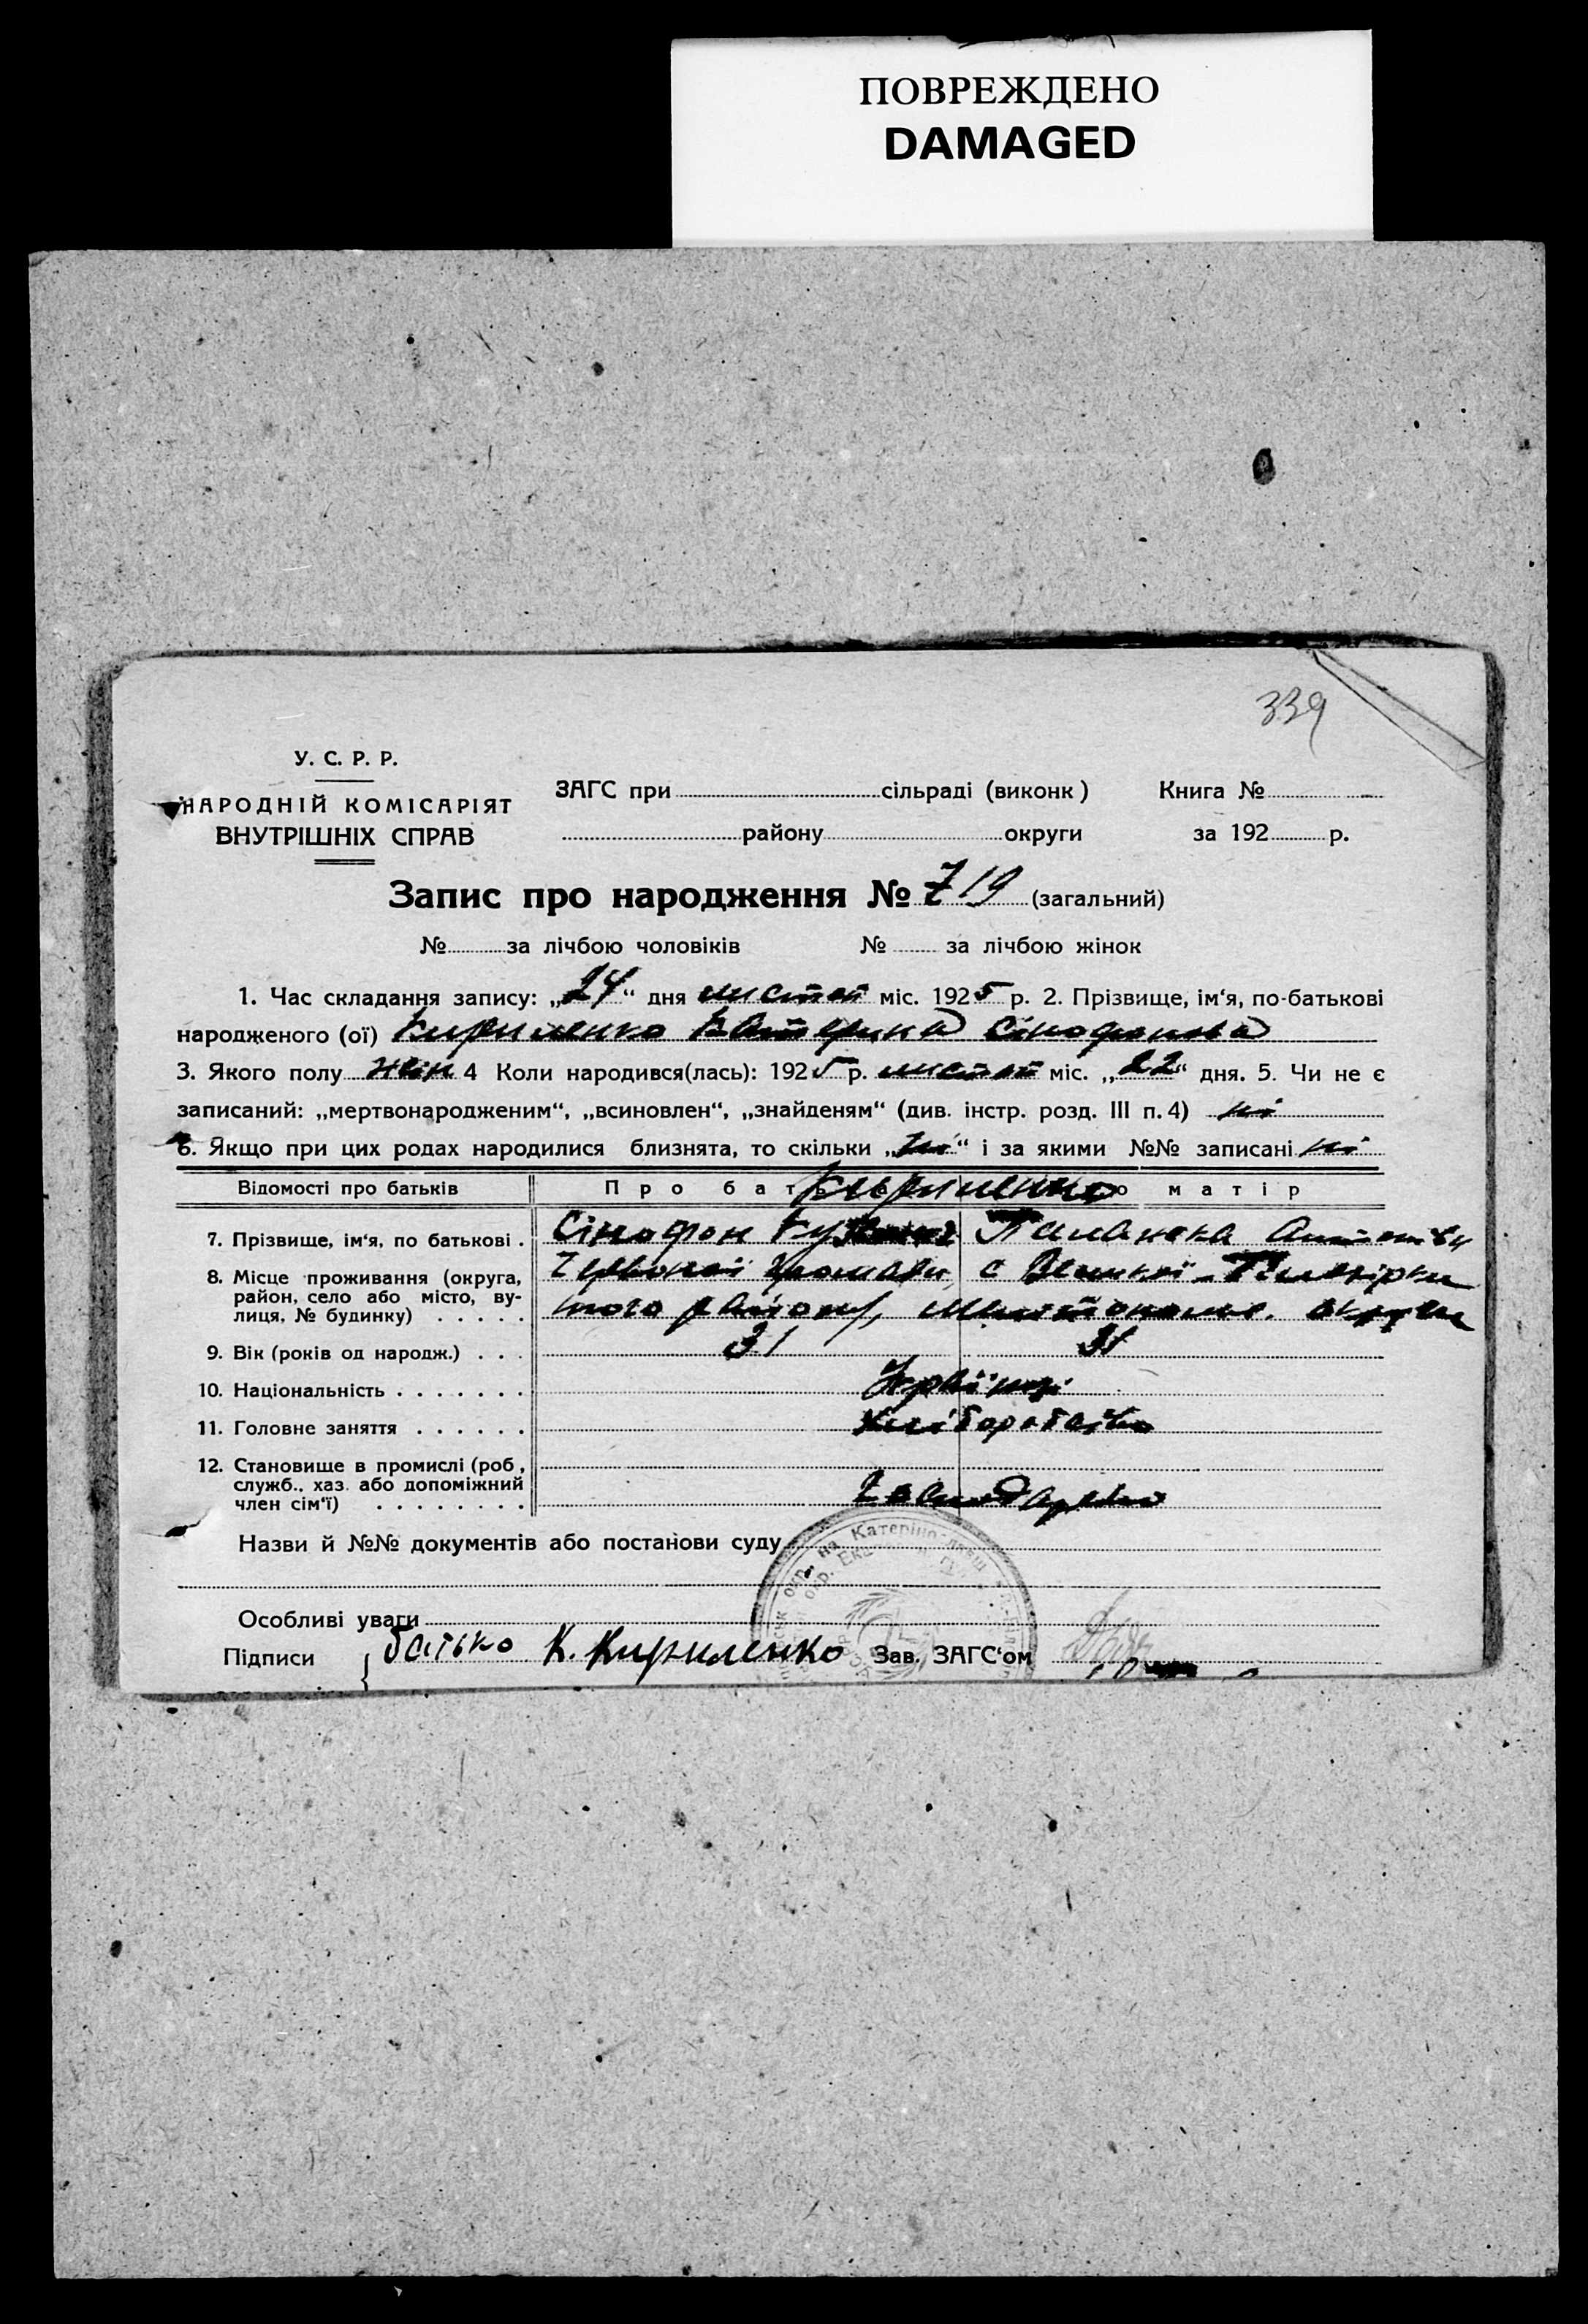 ПОВРЕЖДЕНО
DAMAGED
339
У. С. Р. Р.
НАРОДНІЙ КОМІСАРІЯТ
ВНУТРІШНІХ СПРАВ
ЗАГС при сільраді (виконк) Книга №
району округи за 192 р.
Запис про народження № 719 (загальний)
№ за лічбою чоловіків № за лічбою жінок
1. Час складання запису: „24“ дня листоп міс. 1925 р. 2. Прізвище, ім‘я, по-батькові
народженого (ої) Кириленко Катерина Сінофонова
3. Якого полу жін 4 Коли народився(лась): 1925 р. листоп міс. „22“ дня. 5. Чи не є
записаний: „мертвонародженим“, „всиновлен“, „знайденям“ (див. інстр. розд. III п. 4) ні
6. Якщо при цих родах народилися близнята, то скільки „ні“ і за якими №№ записані ні
Відомості про батьків Про батька Про матір
Кириленко
7. Прізвище, ім‘я, по батькові . Сінофон
8. Місце проживання (округа, Червоної Громади с Великої
район, село або місто, ву- району,
лиця, № будинку) . . . . .
9. Вік (років од народж.) . . . 31 31
10. Національність . . . . . . . Українці
11. Головне заняття . . . . . . Хліборобство
12. Становище в промислі (роб,
служб., хаз. або допоміжний
член сім‘ї) . . . . . . . .
Назви й №№ документів або постанови суду
Особливі уваги
Підписи { батько К. Кириленко Зав. ЗАГС‘ом